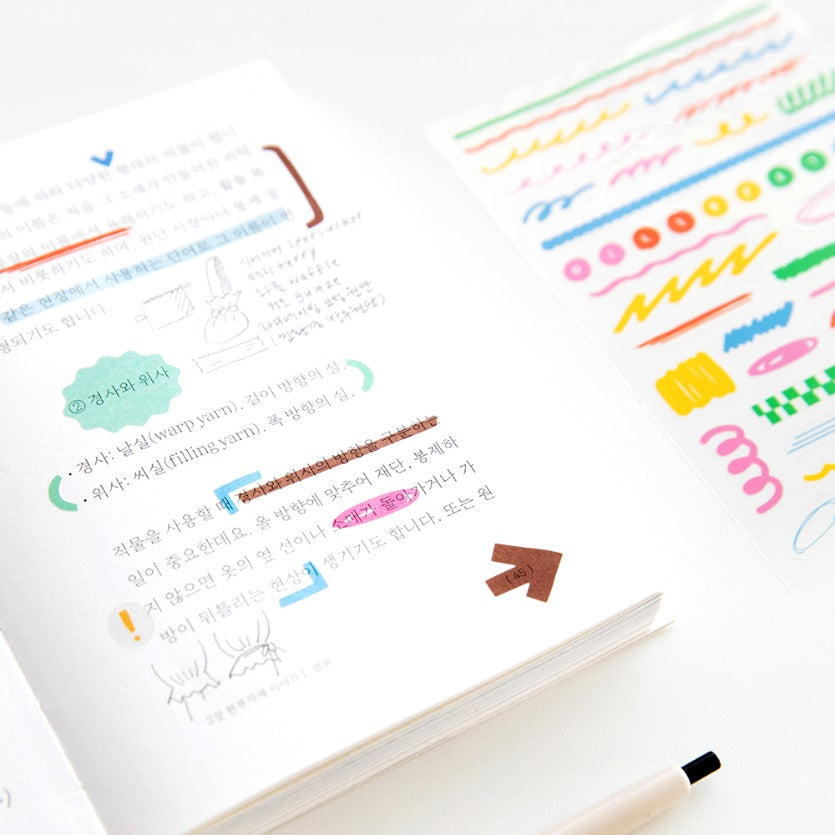 등에 따라 다양한 형태의 직물이 됩니
의 이름은 처음 그 소재가 만들어진 지역
장의 이름에서 유래하기도 하고, 활용 목
서 비롯하기도 하며, 원단 시장이나 봉제 공
같은 현장에서 사용하는 단어로 그 이름이 변
형되기도 합니다.
terry
waffle
gauze
② 경사와 위사
• 경사: 날실(warp yarn). 길이 방향의 실.
• 위사: 씨실(filling yarn). 폭 방향의 실.
직물을 사용할 때 경사와 위사의 방향을 구분하는
일이 중요한데요. 올 방향에 맞추어 재단, 봉제하
지 않으면 옷의 옆 선이나 소매가 돌아가거나 가
방이 뒤틀리는 현상이 생기기도 합니다. 또는 원
(45)
!
2장 원부자재 이야기 1 섬유